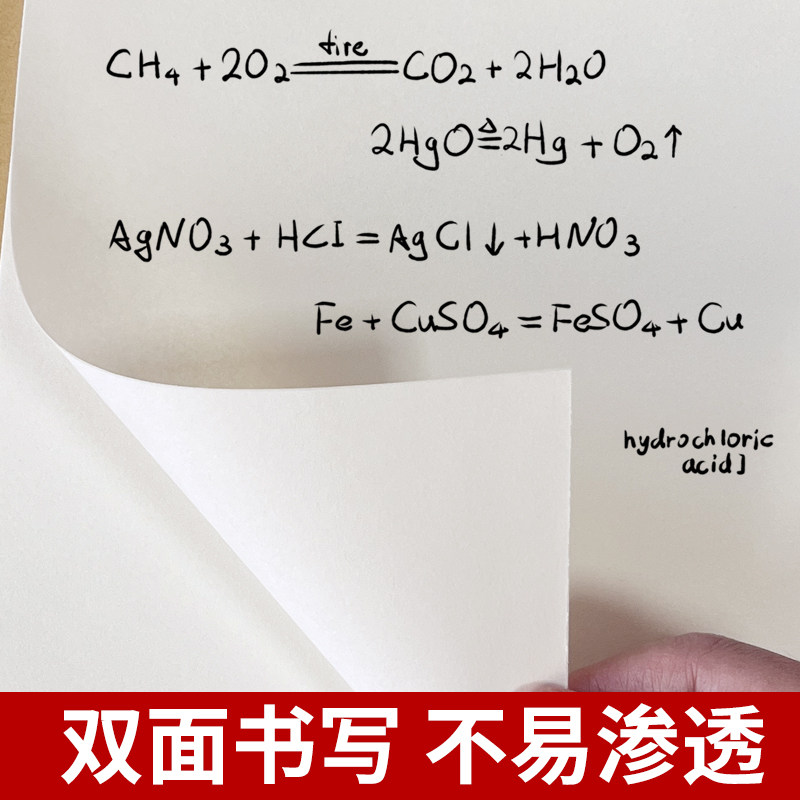 fire
CH₄ + 2O₂ ═ CO₂ + 2H₂O
2HgO ≜ 2Hg + O₂↑
AgNO₃ + HCl = AgCl↓ + HNO₃
Fe + CuSO₄ = FeSO₄ + Cu
hydrochloric
acid]
双面书写 不易渗透